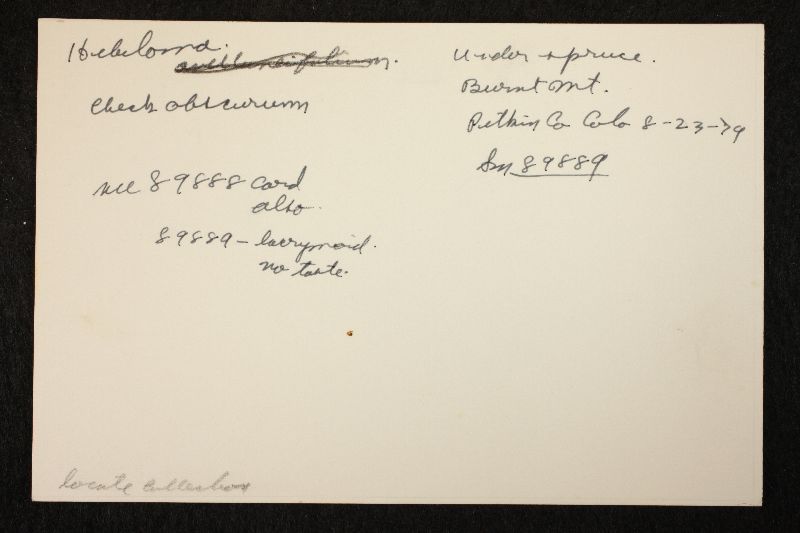 Hebeloma.
check obscurum
see 89888 card
also.
89889 - lacrymoid.
no taste.
Under spruce.
Burnt Mt.
Pitkin Co Colo 8-23-79
Sm 89889
locate collection